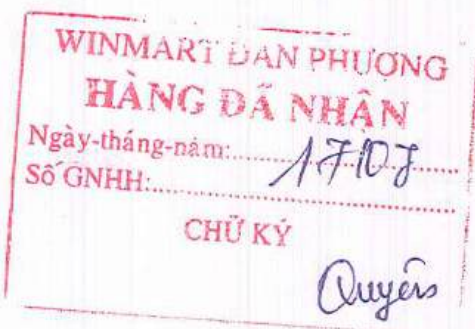 WINMART ĐAN PHƯỢNG
HÀNG ĐÃ NHẬN
Ngày-tháng-năm:......17/07......
Số GNHH:......
CHỮ KÝ
Quyên